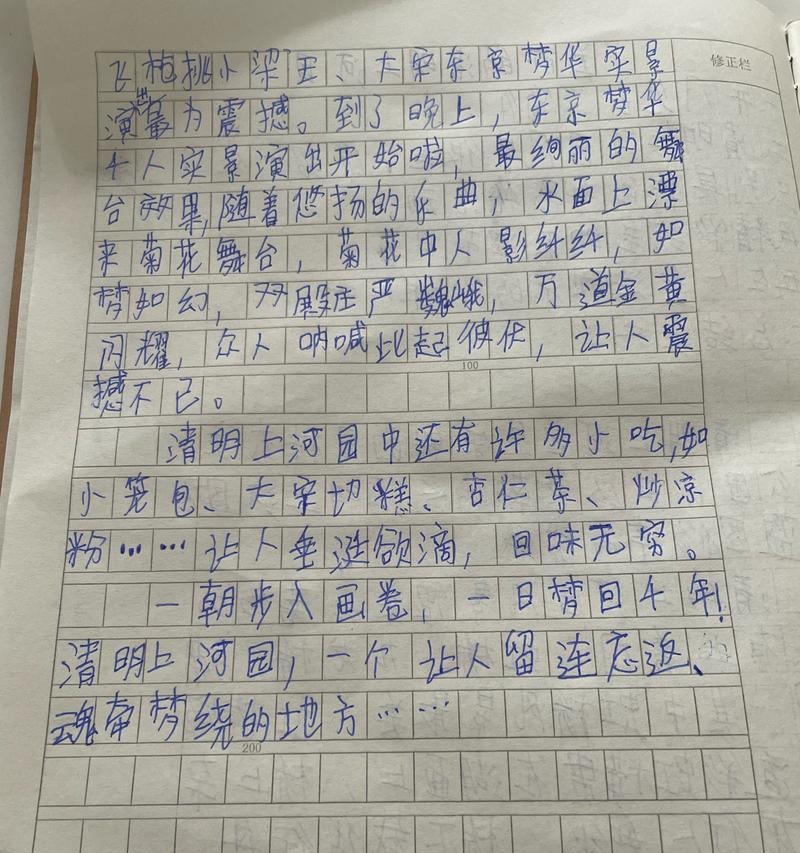 飞枪挑小梁王、大宋东京梦华实景
修正栏
演最为震撼。到了晚上，东京梦华
千人实景演出开始啦，最绚丽的舞
台效果，随着悠扬的乐曲，水面上漂
来菊花舞台，菊花中人影纤纤，如
梦如幻，双殿庄严巍峨，万道金黄
闪耀，众人呐喊此起彼伏，让人震
100
撼不已。
清明上河园中还有许多小吃，如
小笼包、大宋切糕、杏仁茶、炒凉
粉……让人垂涎欲滴，回味无穷。
一朝步入画卷，一日梦回千年！
清明上河园，一个让人留连忘返、
魂牵梦绕的地方……
200